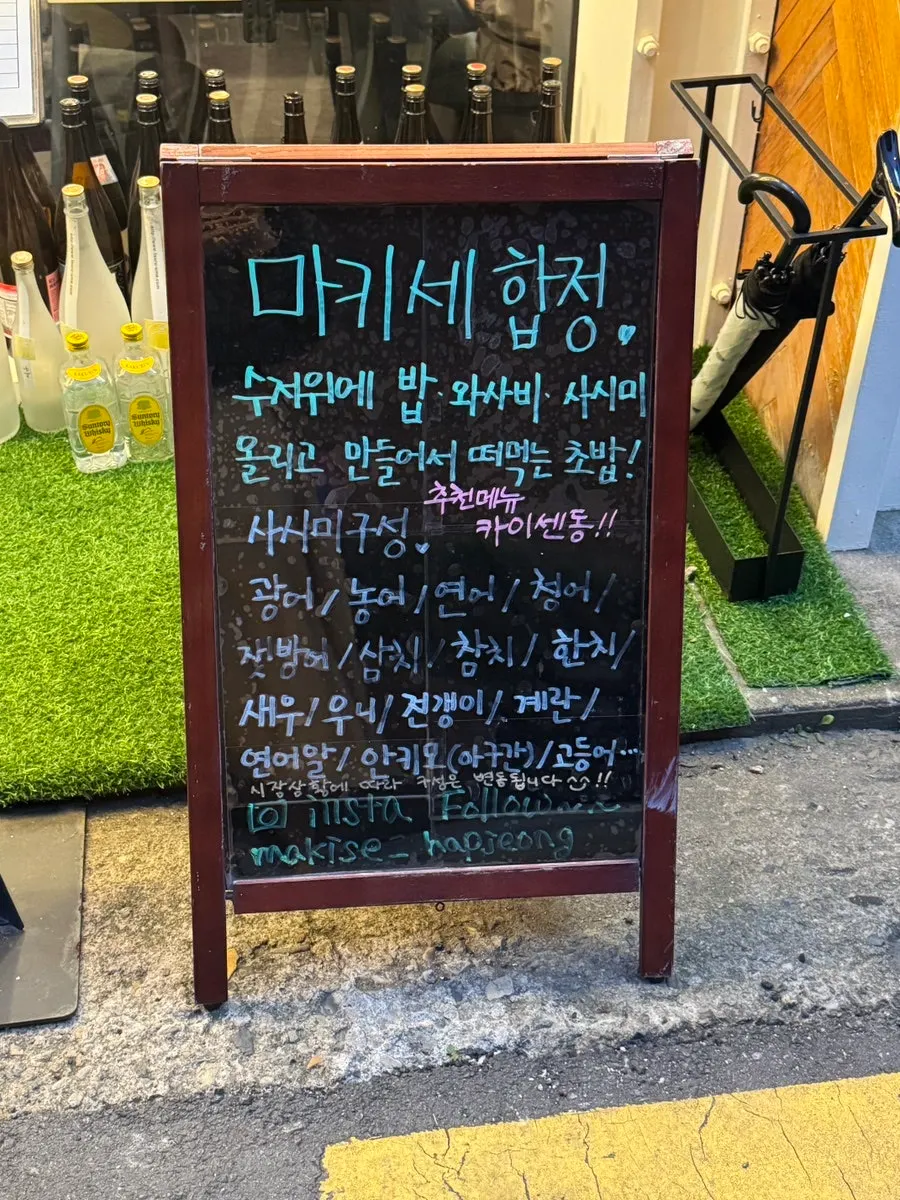 마키세 합정
수저위에 밥·와사비·사시미
올리고 만들어서 떠먹는 초밥!
추천메뉴
카이센동!!
사시미구성
광어/농어/연어/청어/
잿방어/삼치/참치/한치/
새우/우니/전갱이/계란/
연어알/안키모(아구간)/고등어…
시장상황에 따라 구성은 변동됩니다 ^^!!
insta Follow me
makise_hapjeong
Suntory
Whisky
Suntory
Whisky